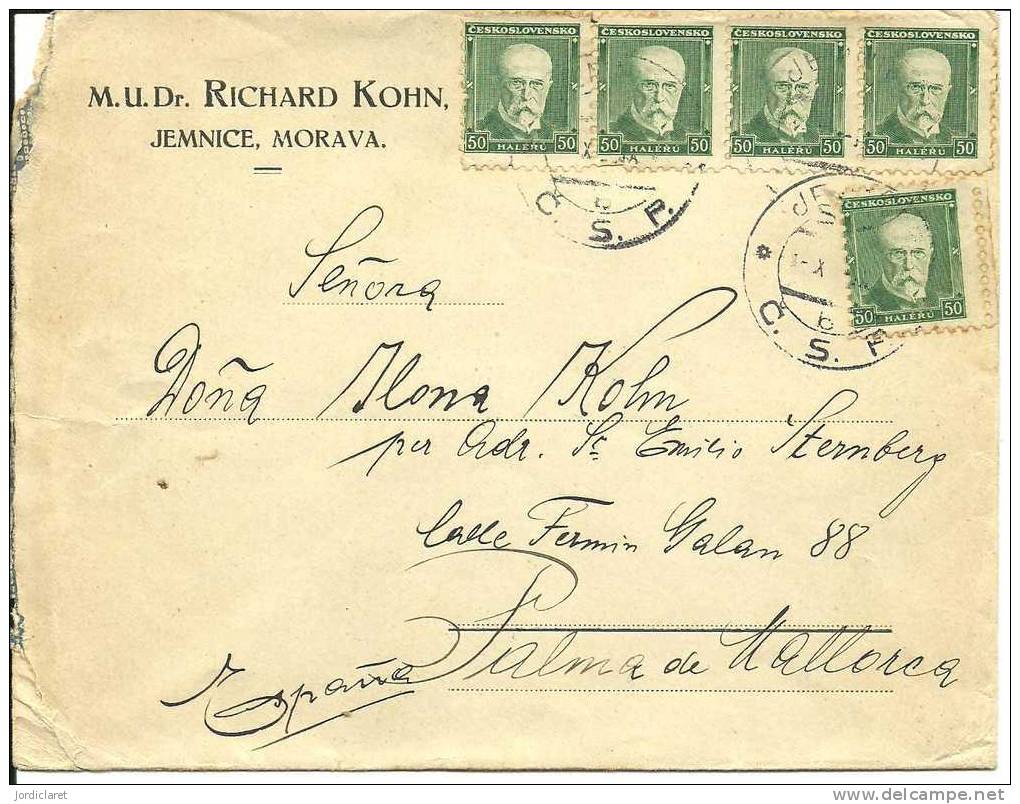 M.U.Dr. RICHARD KOHN,
JEMNICE, MORAVA.
ČESKOSLOVENSKO ČESKOSLOVENSKO ČESKOSLOVENSKO ČESKOSLOVENSKO
50 HALÉŘŮ 50 50 HALÉŘŮ 50 50 HALÉŘŮ 50 50 HALÉŘŮ 50
Č. S. P.
b
ČESKOSLOVENSKO
50 HALÉŘŮ 50
JE
X
b
Č. S. P.
Señora
Doña Ilona Kohn
per Adr. Sr. Emilio Sternberg
Calle Fermin Galan 88
Palma de Mallorca
España
jordiclaret
www.delcampe.net